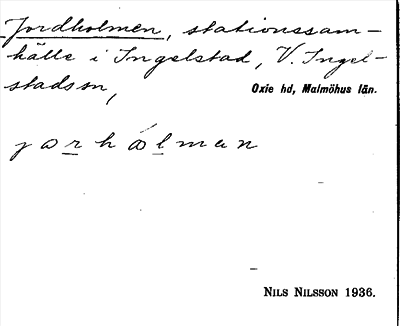 Jordholmen, stationssam-
hälle i Ingelstad, V. Ingel-
stads sn,
Oxie hd, Malmöhus län.
jorhólman
NILS NILSSON 1936.